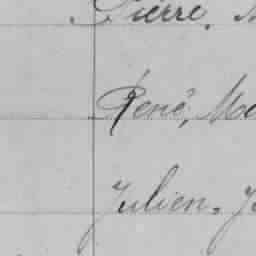 Pierre,
René, Ma
Julien, J